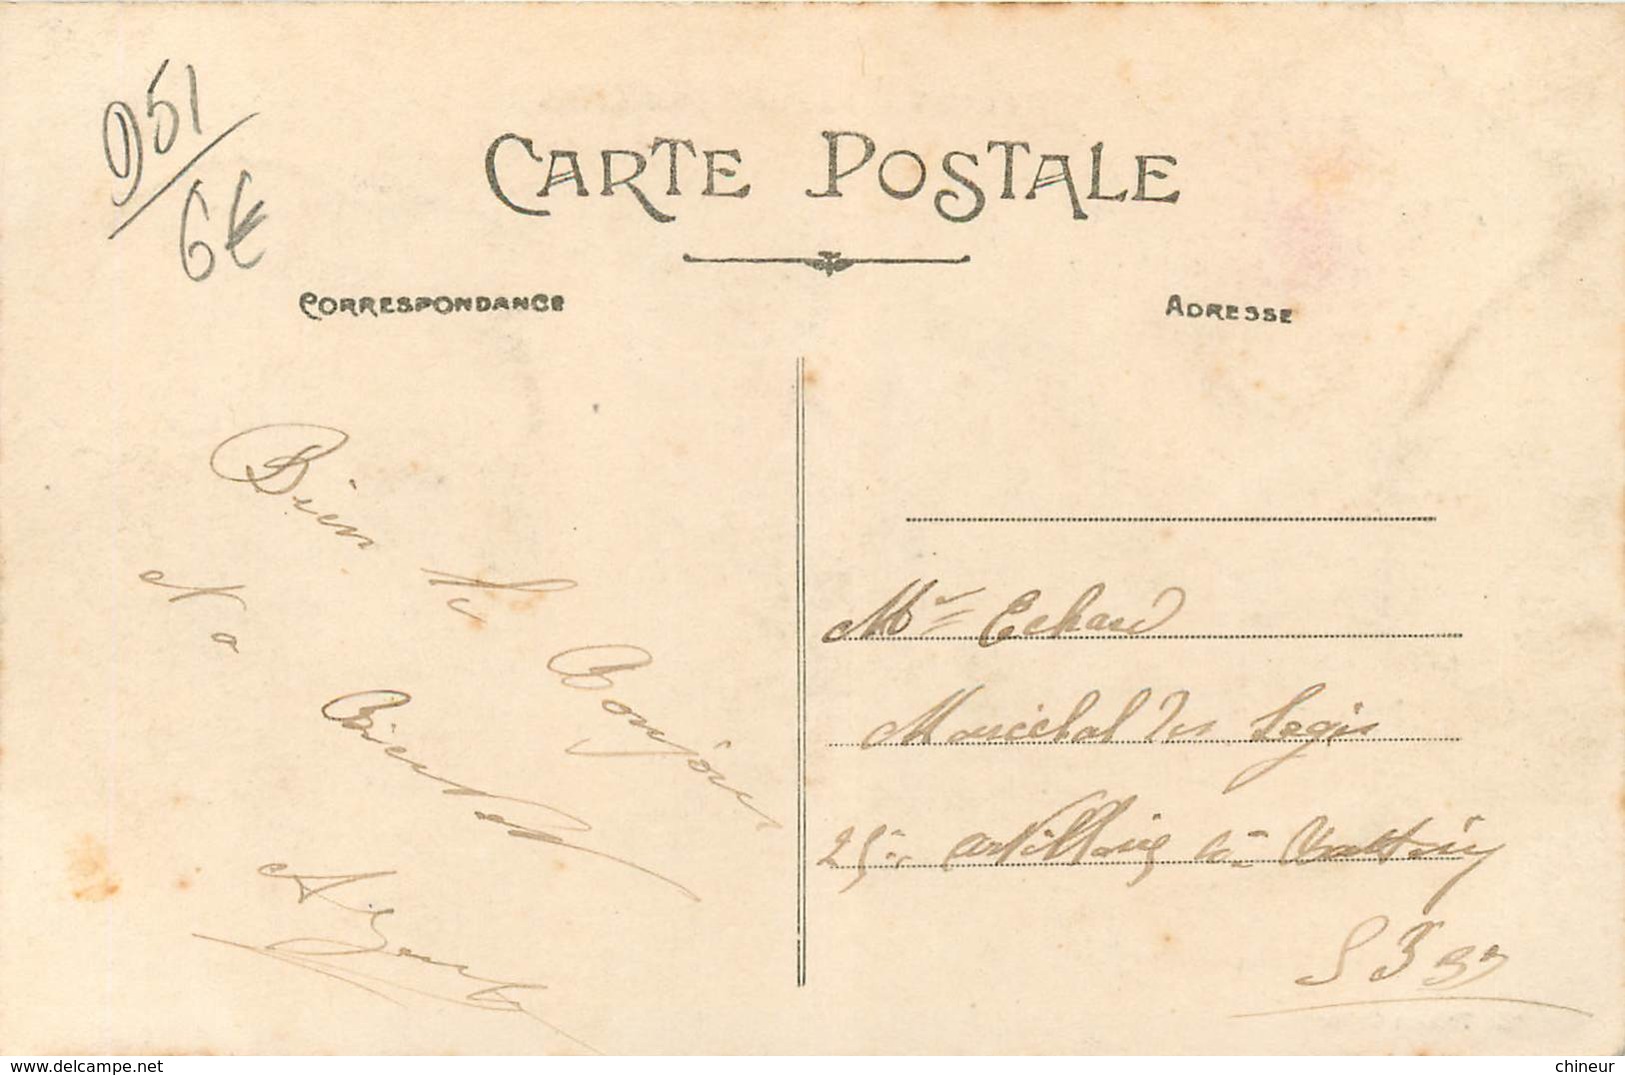 951
6€
CARTE POSTALE
CORRESPONDANCE
ADRESSE
Bien le Bonjour
Na
Mr Echard
Marechal des Logis
25e artillerie à
S P 33
delcampe.net
chineur